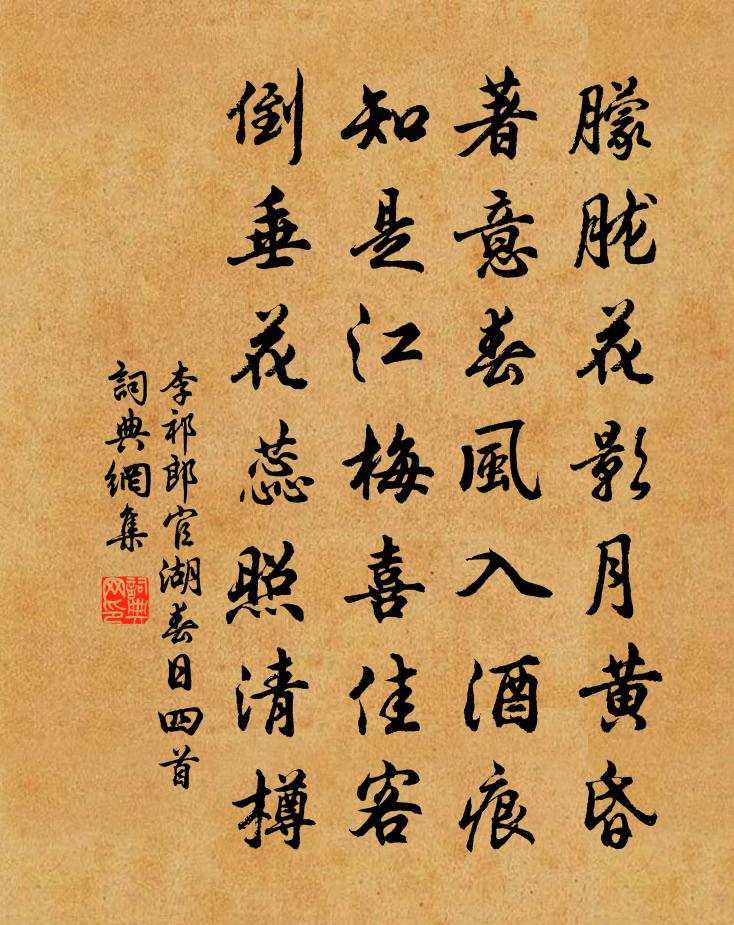 朦朧花影月黄昏
著意春風入酒痕
知是江梅喜佳客
倒垂花蕊照清樽
李祁郎官湖春日四首
詞典網集
詞典網印